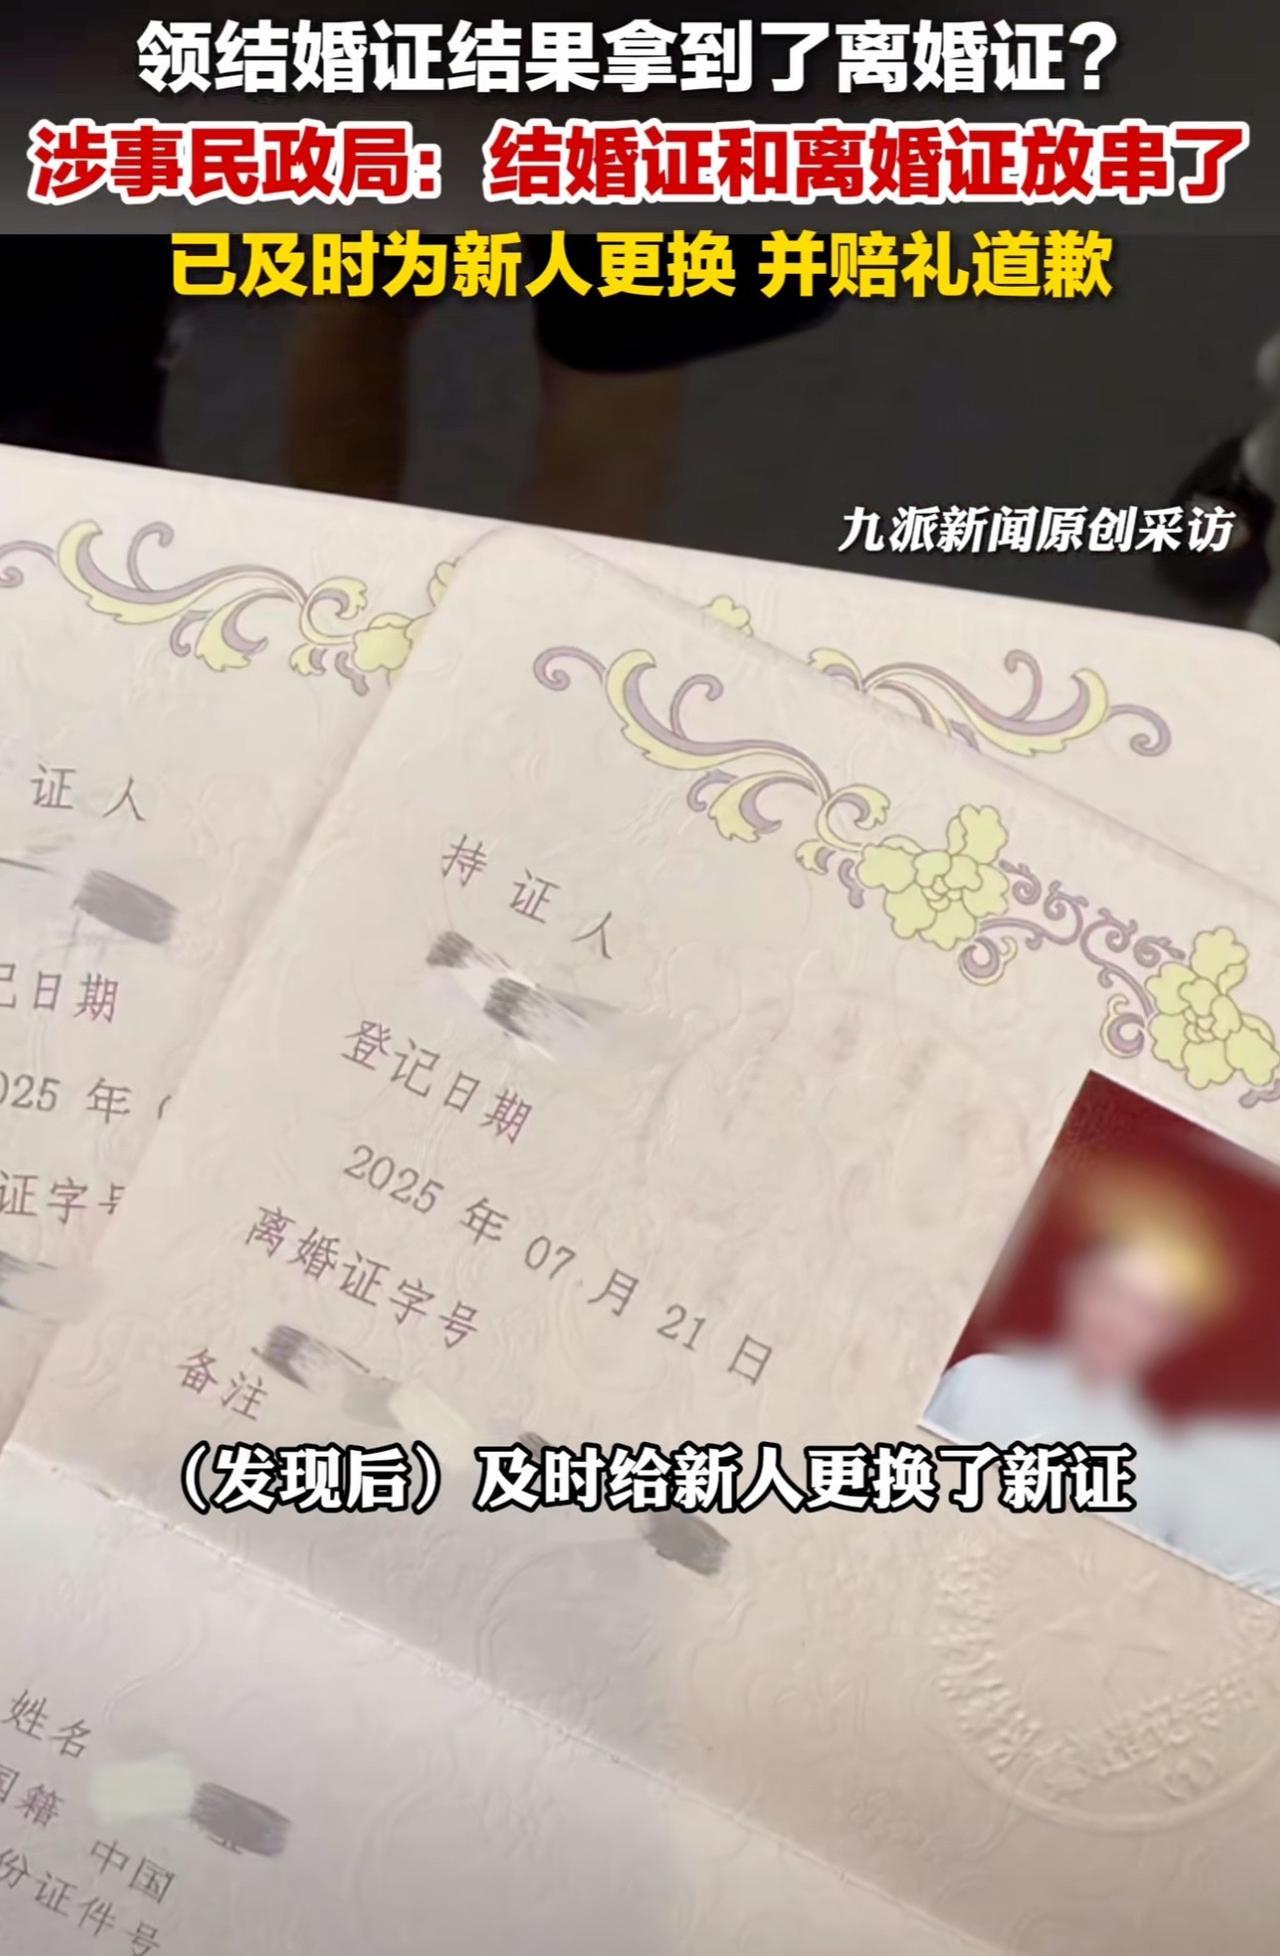 领结婚证结果拿到了离婚证？
涉事民政局：结婚证和离婚证放串了
已及时为新人更换 并赔礼道歉
九派新闻原创采访
证人
记日期
025 年
证字号
持证人
登记日期
2025 年 07 月 21 日
离婚证字号
备注
（发现后）及时给新人更换了新证
姓名
国籍 中国
份证件号